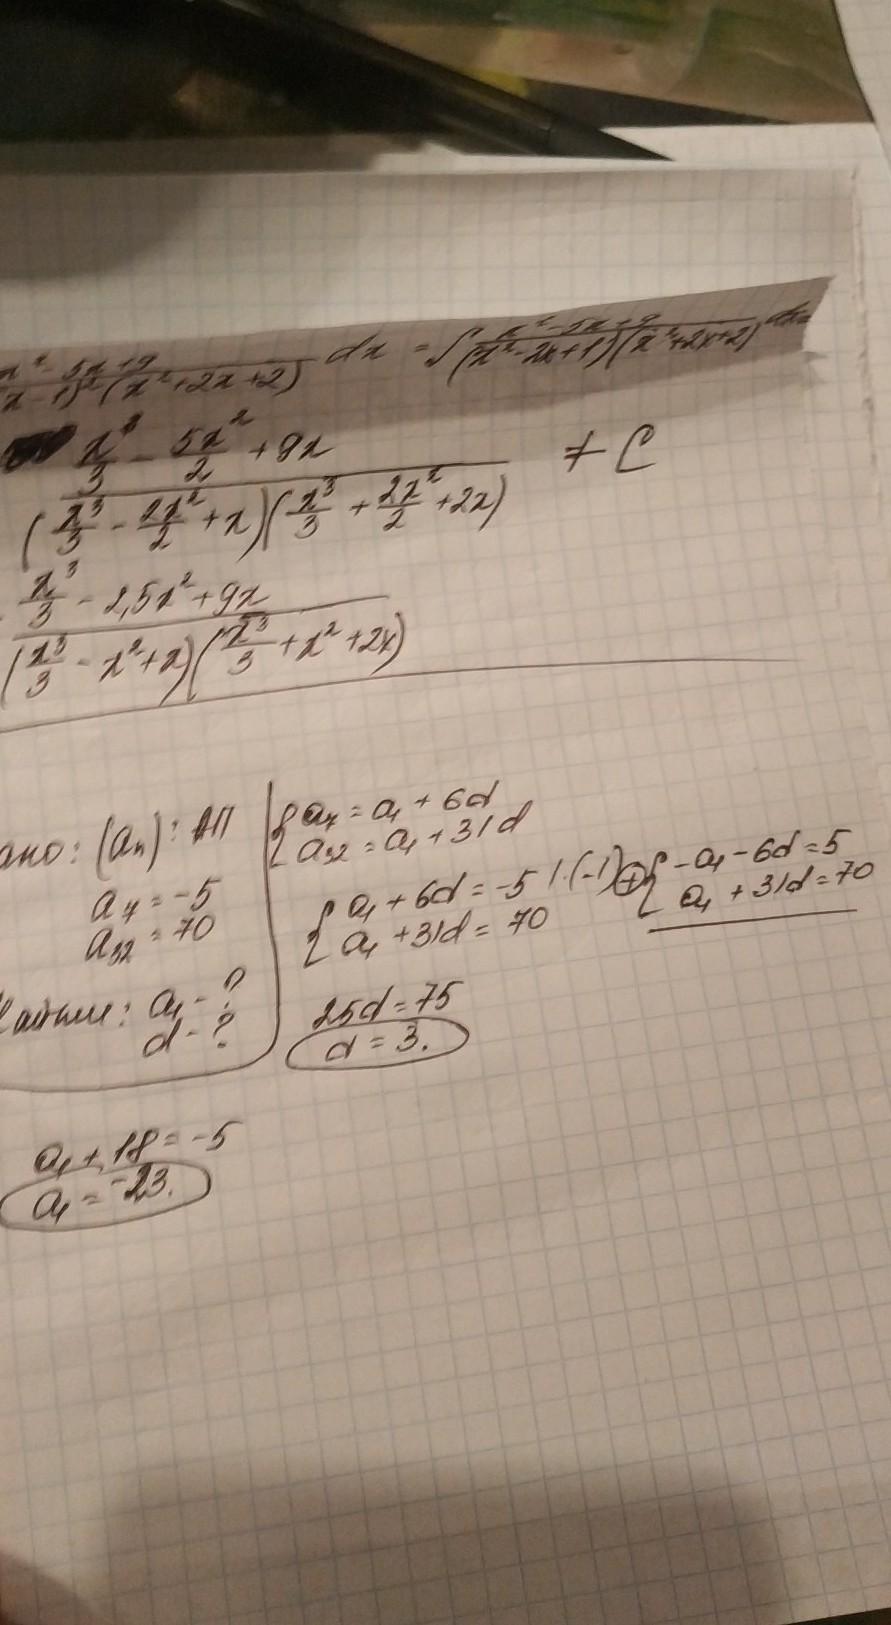 x² - 5x + 9 / (x - 1)²(x² + 2x + 2) dx = ∫ x² - 5x + 9 / (x² - 2x + 1)(x² + 2x + 2) dx =
x³/3 - 5x²/2 + 9x / (x³/3 - 2x²/2 + x)(x³/3 + 2x²/2 + 2x) + C
x³/3 - 2,5x² + 9x / (x³/3 - x² + x)(x³/3 + x² + 2x)
ано: (aₙ): АП
a₇ = -5
a₃₂ = 70
a₁ - ?
d - ?
{ a₇ = a₁ + 6d
a₃₂ = a₁ + 31d
{ a₁ + 6d = -5 | · (-1)
a₁ + 31d = 70
⊕ { -a₁ - 6d = 5
a₁ + 31d = 70
25d = 75
d = 3.
a₁ + 18 = -5
a₁ = -23.